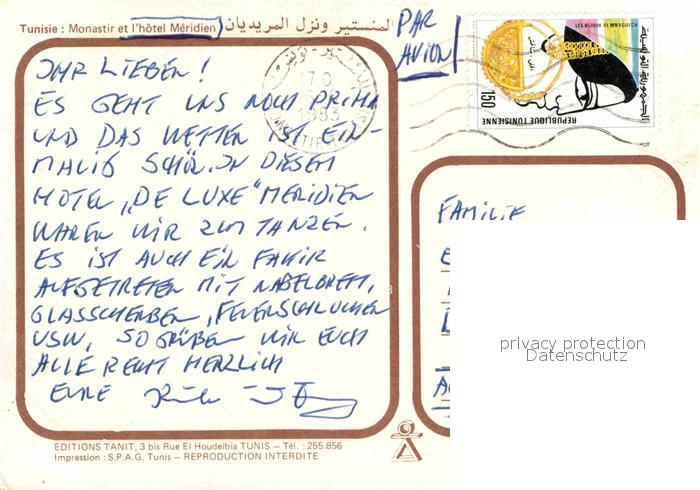 Tunisie : Monastir et l'hôtel Méridien المنستير ونزل المريديان
PAR
AVION
IHR LIEBEN!
ES GEHT UNS NOCH PRIMA
UND DAS WETTER IST EIN-
MALIG SCHÖN. IN DIESEM
HOTEL „DE LUXE" MERIDIEN
WAREN WIR ZUM TANZEN.
ES IST AUCH EIN FAKIR
AUFGETRETEN MIT NAGELBRETT,
GLASSCHERBEN, FEUERSCHLUCKEN
USW. SO GRÜßEN WIR EUCH
ALLE RECHT HERZLICH
EURE
1983
150
REPUBLIQUE TUNISIENNE
FAMILIE
privacy protection
Datenschutz
EDITIONS TANIT, 3 bis Rue El Houdeibia TUNIS - Tél. : 255.856
Impression : S.P.A.G. Tunis - REPRODUCTION INTERDITE